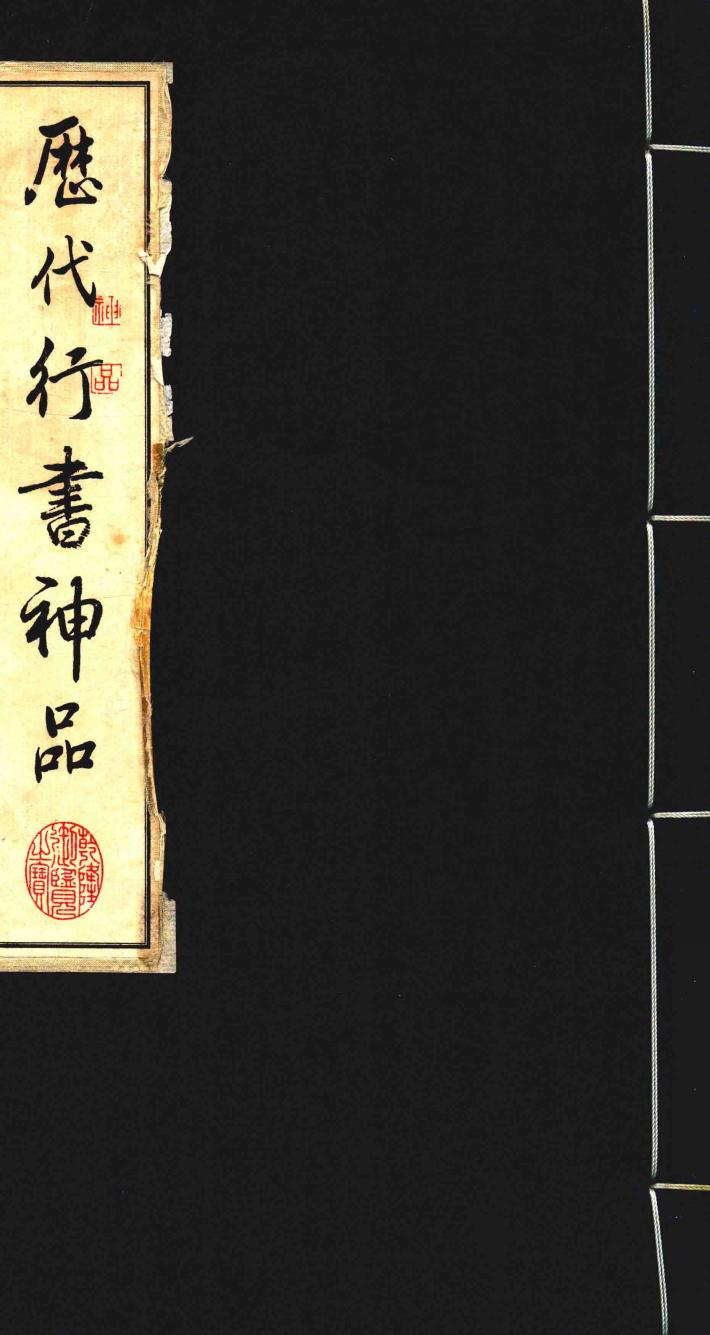 歷代行書神品
神
品
乾隆御覽之寶